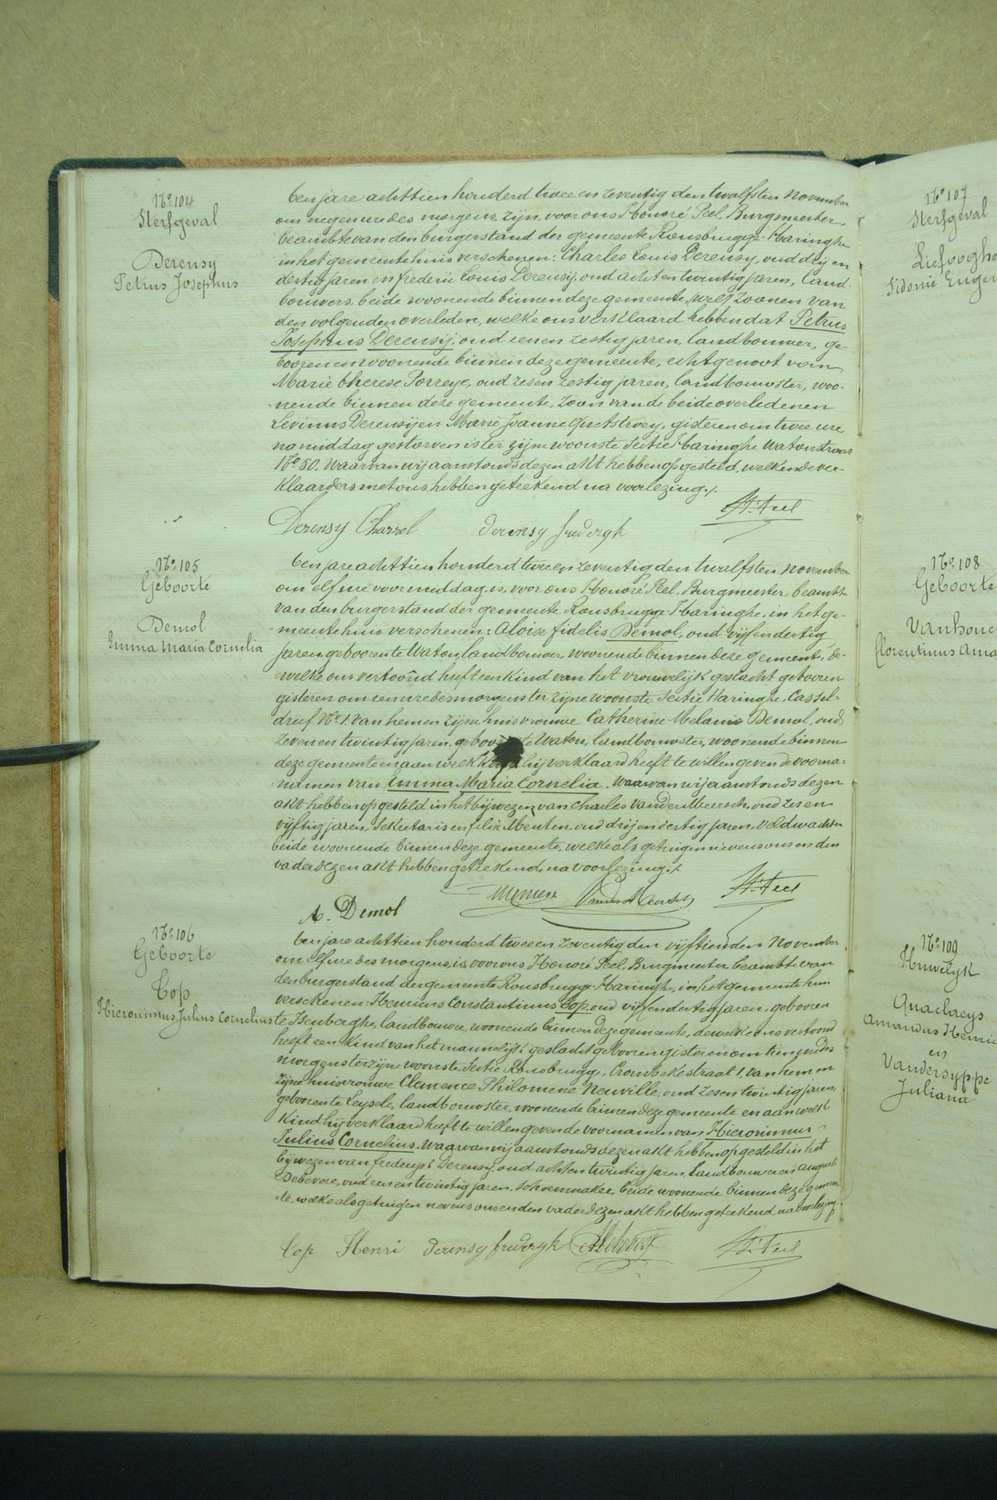 No 104
Sterfgeval
Derensy
Petrus Josephus
Ten jare achttien honderd twee en zeventig den twalfsten November
om negen ure des morgens, zijn voor ons Honoré Peel, Burgmeester
beambte van den burgerstand der gemeente Rousbrugge-Haringhe
in het gemeentehuis verschenen: Charles Louis Derensy, oud drij en
dertig jaren en frederic Louis Derensy, oud acht en twintig jaren, land-
bouwers, beide woonende binnen deze gemeente, zoonen van
den volgenden overleden, welke ons verklaard hebben dat Petrus
Josephus Derensij, oud eenen zestig jaren, landbouwer, ge-
boren en woonende binnen deze gemeente, echtgenoot van
Marie therese Porreye, oud zes en zestig jaren, landbouwster, woo-
nende binnen deze gemeente, zoon van de beide overledenen
Levinus Derensij en Marie Joanne, gisteren om twee ure
namiddag gestorven is ter zijne woonste sectie Haringhe Watoustraat
No 50. Waarvan wij aanstonds dezen akt hebben opgesteld, welken de ver-
klaarders met ons hebben geteekend na voorlezing./.
Derensy Charrel derensy frederyk H. Peel
No 105
Geboorte
Demol
Emma Maria Cornelia
Ten jare achttien honderd twee en zeventig den twalfsten November
om elf ure voormiddag, is voor ons Honoré Peel, Burgmeester, beambte
van den burgerstand der gemeente Rousbrugge-Haringhe, in het ge-
meentehuis verschenen: Aloïse fidelis Demol, oud vijf en dertig
jaren geboren te Watou, landbouwer, woonende binnen deze gemeente, de-
welke ons vertoond heeft een kind van het vrouwelijk geslacht geboren
gisteren om een ure des morgens ter zijne woonste Sectie Haringhe, Cassel-
dreef No 1. van hem en zijne huisvrouwe Catherine Melanie Demol, oud
zeven en twintig jaren, geboren te Watou, landbouwster, woonende binnen
deze gemeente en aan welk kind hij verklaard heeft te willen geven de voorna-
namen van Emma Maria Cornelia. Waarvan wij aanstonds dezen
akt hebben opgesteld in het bijwezen van Charles Vandermeersch, oud zes en
vijftig jaren, Sekretaris en felix Menten, oud drij en dertig jaren, veldwachter
beide woonende binnen deze gemeente, welke als getuigen nevens ons en den
vader dezen akt hebben geteekend, na voorlezing./.
A. Demol H. Peel
No 106
Geboorte
Cop
Hieronimus Julius Cornelius
Ten jare achttien honderd twee en zeventig den vijftienden November
om elf ure des morgens, is voor ons Honoré Peel, Burgmeester beambte van
den burgerstand der gemeente Rousbrugge-Haringhe, in het gemeente huis
verschenen: Henricus Constantinus Cop, oud vijf en dertig jaren, geboren
te Isenberghe, landbouwer, woonende binnen deze gemeente, dewelke ons vertoond
heeft een kind van het mannelijk geslacht geboren gisteren om tien ure des
morgens ter zijne woonste Sectie Rousbrugge, Crombekestraat 1, van hem en
zijne huisvrouwe Clemence Philomene Neuville, oud zes en twintig jaren,
geboren te Leysele, landbouwster, woonende binnen deze gemeente en aan welk
kind hij verklaard heeft te willen geven de voornamen van Hieronimus
Julius Cornelius. Waarvan wij aanstonds dezen akt hebben opgesteld in het
bijwezen van frederyk Derensy, oud acht en twintig jaren, landbouwer en august
Debevere, oud een en twintig jaren, schoenmaker, beide woonende binnen deze gemeen-
te, welke als getuigen nevens ons en den vader dezen akt hebben geteekend na voorlezing
Cop Henri derensy frederyk H. Peel
No 107
Sterfgeval
Liefoogh
Sidonie Eugen
No 108
Geboorte
Vanhouc
florentinus Ama
No 109
Huwelyk
Quaclaeys
Amandus Henri
en
Vandersyppe
Juliana